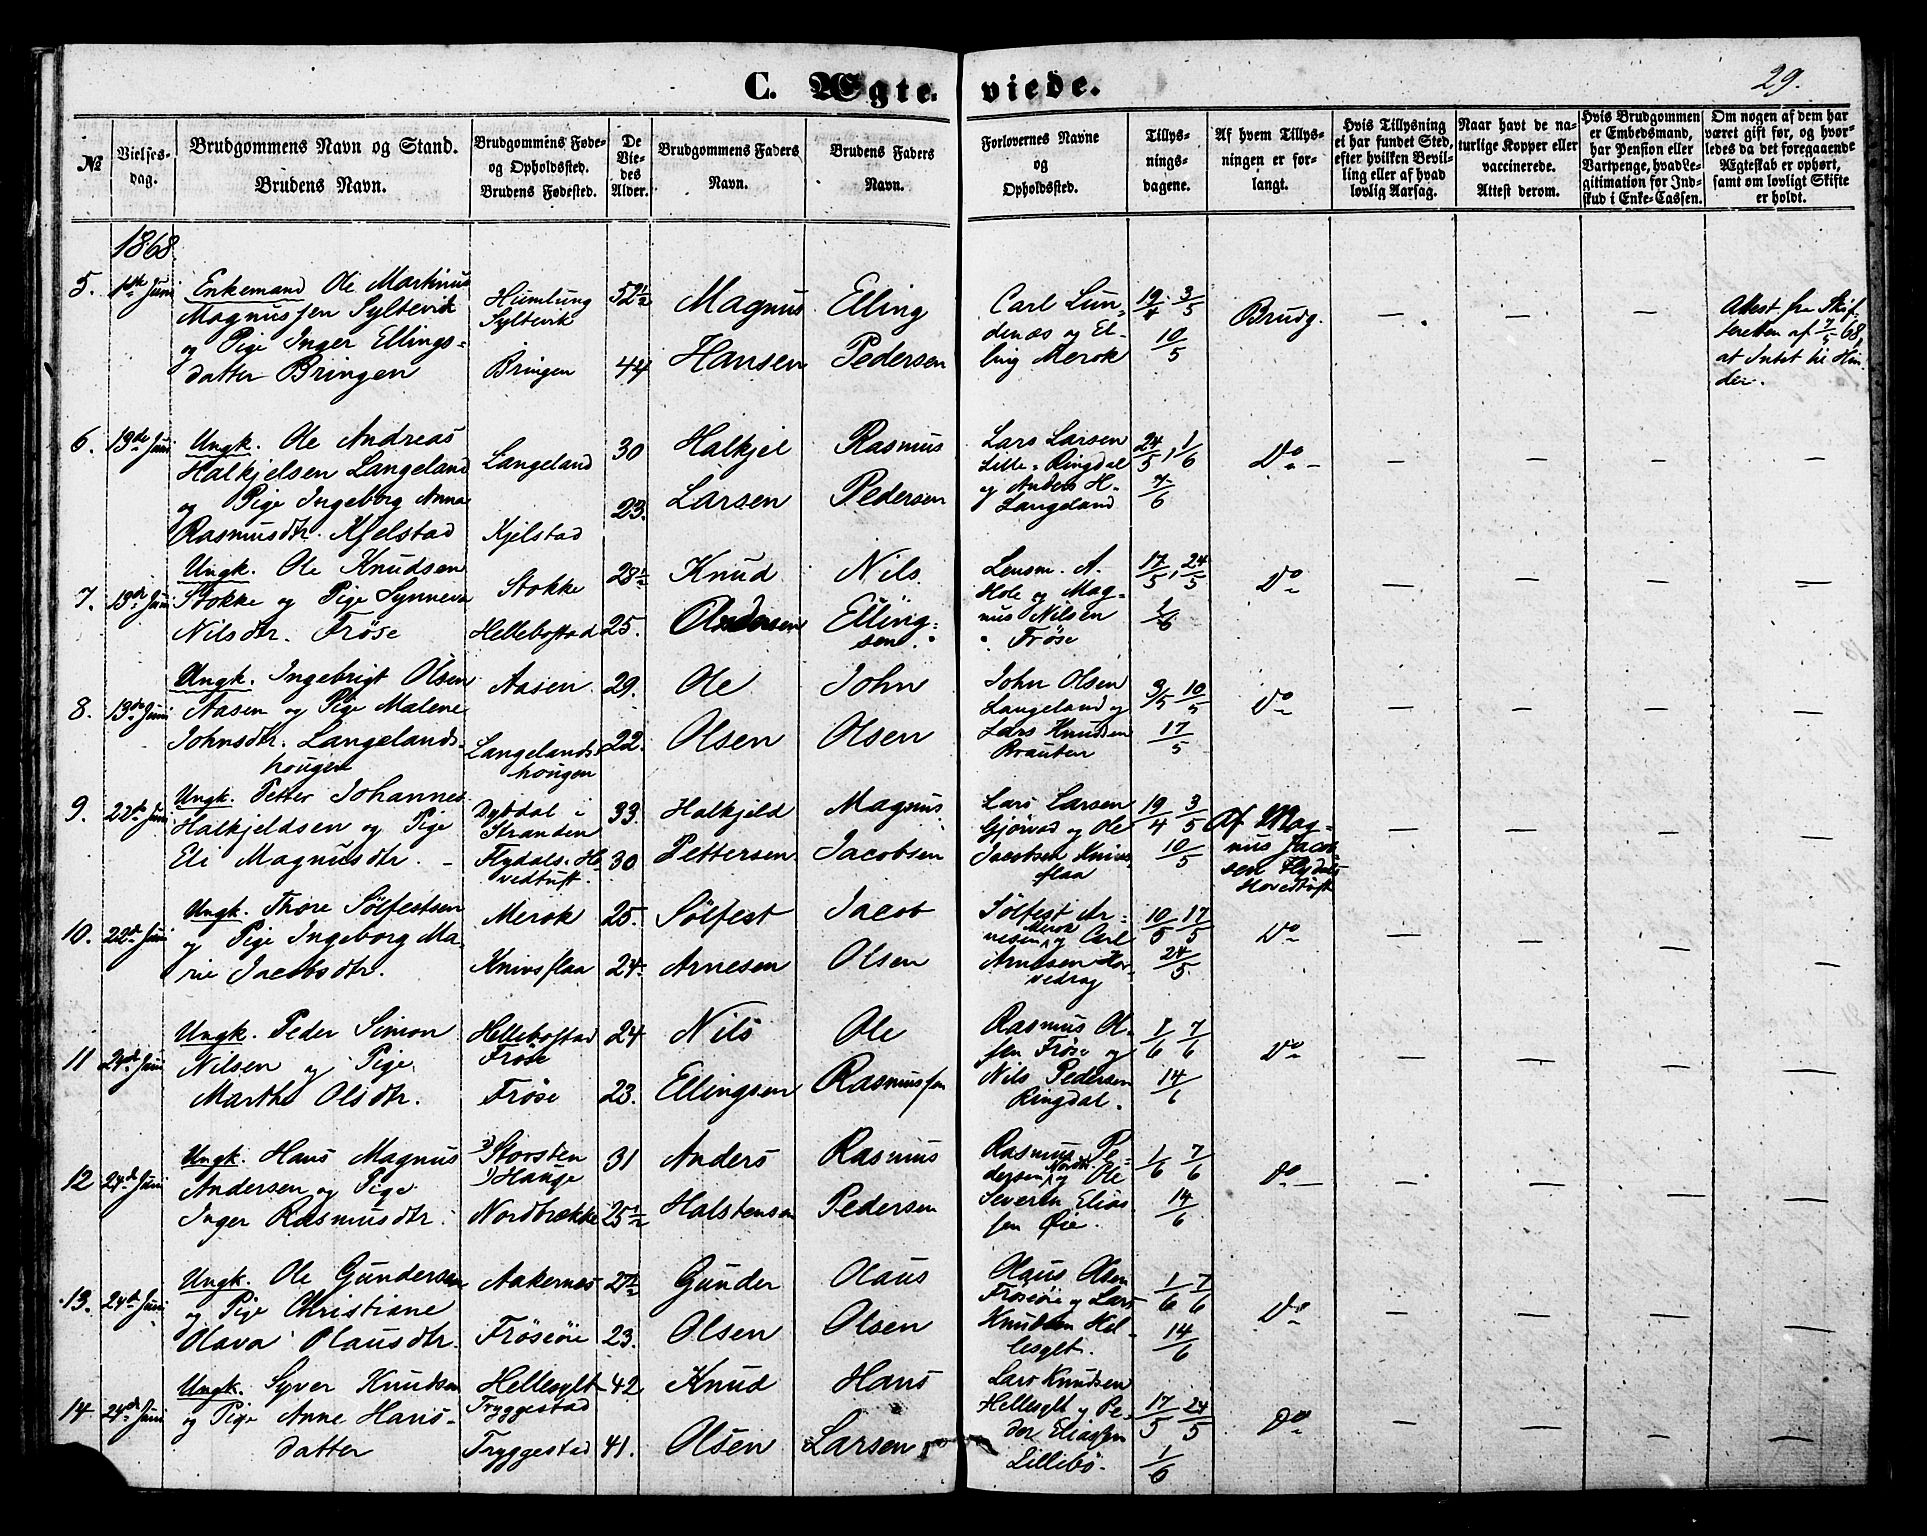 C. Ægte-viede.
29.
№
Vielses-
dag.
Brudgommens Navn og Stand.
Brudens Navn.
Brudgommens Føde-
og Opholdssted.
Brudens Fødested.
De
Vie-
des
Alder.
Brudgommens Faders
Navn.
Brudens Faders
Navn.
Forlovernes Navne
og
Opholdssted.
Tillys-
nings-
dagene.
Af hvem Tillys-
ningen er for-
langt.
Hvis Tillysning
ei har fundet Sted,
efter hvilken Bevil-
ling eller af hvad
lovlig Aarsag.
Naar havt de na-
turlige Kopper eller
vaccinerede.
Attest derom.
Hvis Brudgommen
er Embedsmand,
har Pension eller
Vartpenge, hvad Le-
gitimation for Ind-
skud i Enke-Cassen.
Om nogen af dem har
været gift før, og hvor-
ledes da det foregaaende
Ægteskab er ophørt,
samt om lovligt Skifte
er holdt.
1868
5. 1ste Juni
Enkemand Ole Martinus
Magnussen Syltevik
og Pige Inger Ellings-
datter Bringen
Humlung
Syltevik
Bringen
52½
44
Magnus
Hansen
Elling
Pedersen
Carl Lun-
denæs og El-
ling Merok
19/4. 3/5
10/5
Brudg.
— — —
Attest fra Skif-
teretten af 7/5 68,
at Intet til Hin-
der.
6. 19de Juni
Ungk. Ole Andreas
Halkjelsen Langeland
og Pige Ingeborg Anna
Rasmusdtr. Kjelstad
Langeland
Kjelstad
30
23.
Halkjel
Larsen
Rasmus
Pedersen
Lars Larsen
Lille-Ringdal
og Anders H.
Langeland
24/5, 1/6
7/6
Do —
— — — —
7. 19de Juni
Ungk. Ole Knudsen
Stokke og Pige Synneva
Nilsdtr. Fröse
Stokke
Hellebostad
28½
25.
Knud
Andersen
Nils
Elling-
sen.
Lensm. A.
Hole og Mag-
nus Nilsen
Fröse
17/5, 24/5
1/6
Do
— — — —
8. 19de Juni
Ungk. Ingebrigt Olsen
Aasen og Pige Malene
Johnsdtr. Langelands-
hougen
Aasen
Langelands-
hougen
29.
22.
Ole
Olsen
John
Olsen
John Olsen
Langeland og
Lars Knudsen
Brauten
3/5 10/5
17/5
Do
— — — —
9. 22de Juni
Ungk. Petter Johannes
Halkjeldsen og Pige
Eli Magnusdtr. —
Dybdal i
Stranden
Flydals-Ho-
vedtuft.
33.
30
Halkjeld
Pettersen
Magnus
Jacobsen
Lars Larsen
Gjörvad og Ole
Jacobsen Knivs-
flaa
19/4 3/5
10/5
Af Mag-
nus Jacob-
sen Flydals
Hovedtuft
— — — —
10. 22de Juni
Ungk. Thore Sölfestsen
og Pige Ingeborg Ma-
rie Jacobsdtr.
Merok
Knivsflaa
25.
24.
Sölfest
Arnesen
Jacob
Olsen
Sölfest Ar-
nesen Merok og Carl
Arnesen Ho-
vedrag
10/5 17/5
24/5
Do
— — — —
11 24de Juni
Ungk. Peder Simon
Nilsen og Pige
Marthe Olsdtr.
Hellebostad
Fröse
Fröse
24
23.
Nils
Ellingsen
Ole
Rasmussen
Rasmus Ol-
sen Fröse og
Nils Pedersen
Ringdal.
1/6 7/6
14/6
Do
— — — —
12 24de Juni
Ungk. Hans Magnus
Andersen og Pige
Inger Rasmusdtr.
2) Storsten
1) Hauge
Nordbrække
31
25½
Anders
Halstensen
Rasmus
Pedersen
Rasmus Pe-
dersen Nordbr. og Ole
Severin Elias-
sen Øie.
1/6 7/6
14/6
Do —
— — — —
13. 24de Juni
Ungk. Ole Gundersen
og Pige Christiane
Olava Olausdtr.
Aakernes
Fröseöie
27½
23.
Gunder
Olsen
Olaus
Olsen
Olaus Olsen
Fröseöie og Lars
Knudsen Hel-
lesylt.
1/6 7/6
14/6
Do
— — — —
14 24de Juni
Ungk. Syver Knudsen
og Pige Anne Hans-
datter
Hellesylt
Tryggestad
Tryggestad
42
41.
Knud
Olsen
Hans
Larsen
Lars Knudsen
Hellesylt og Pe-
der Eliassen
Lillebö.
17/5 24/5
1/6
Do
— — — —